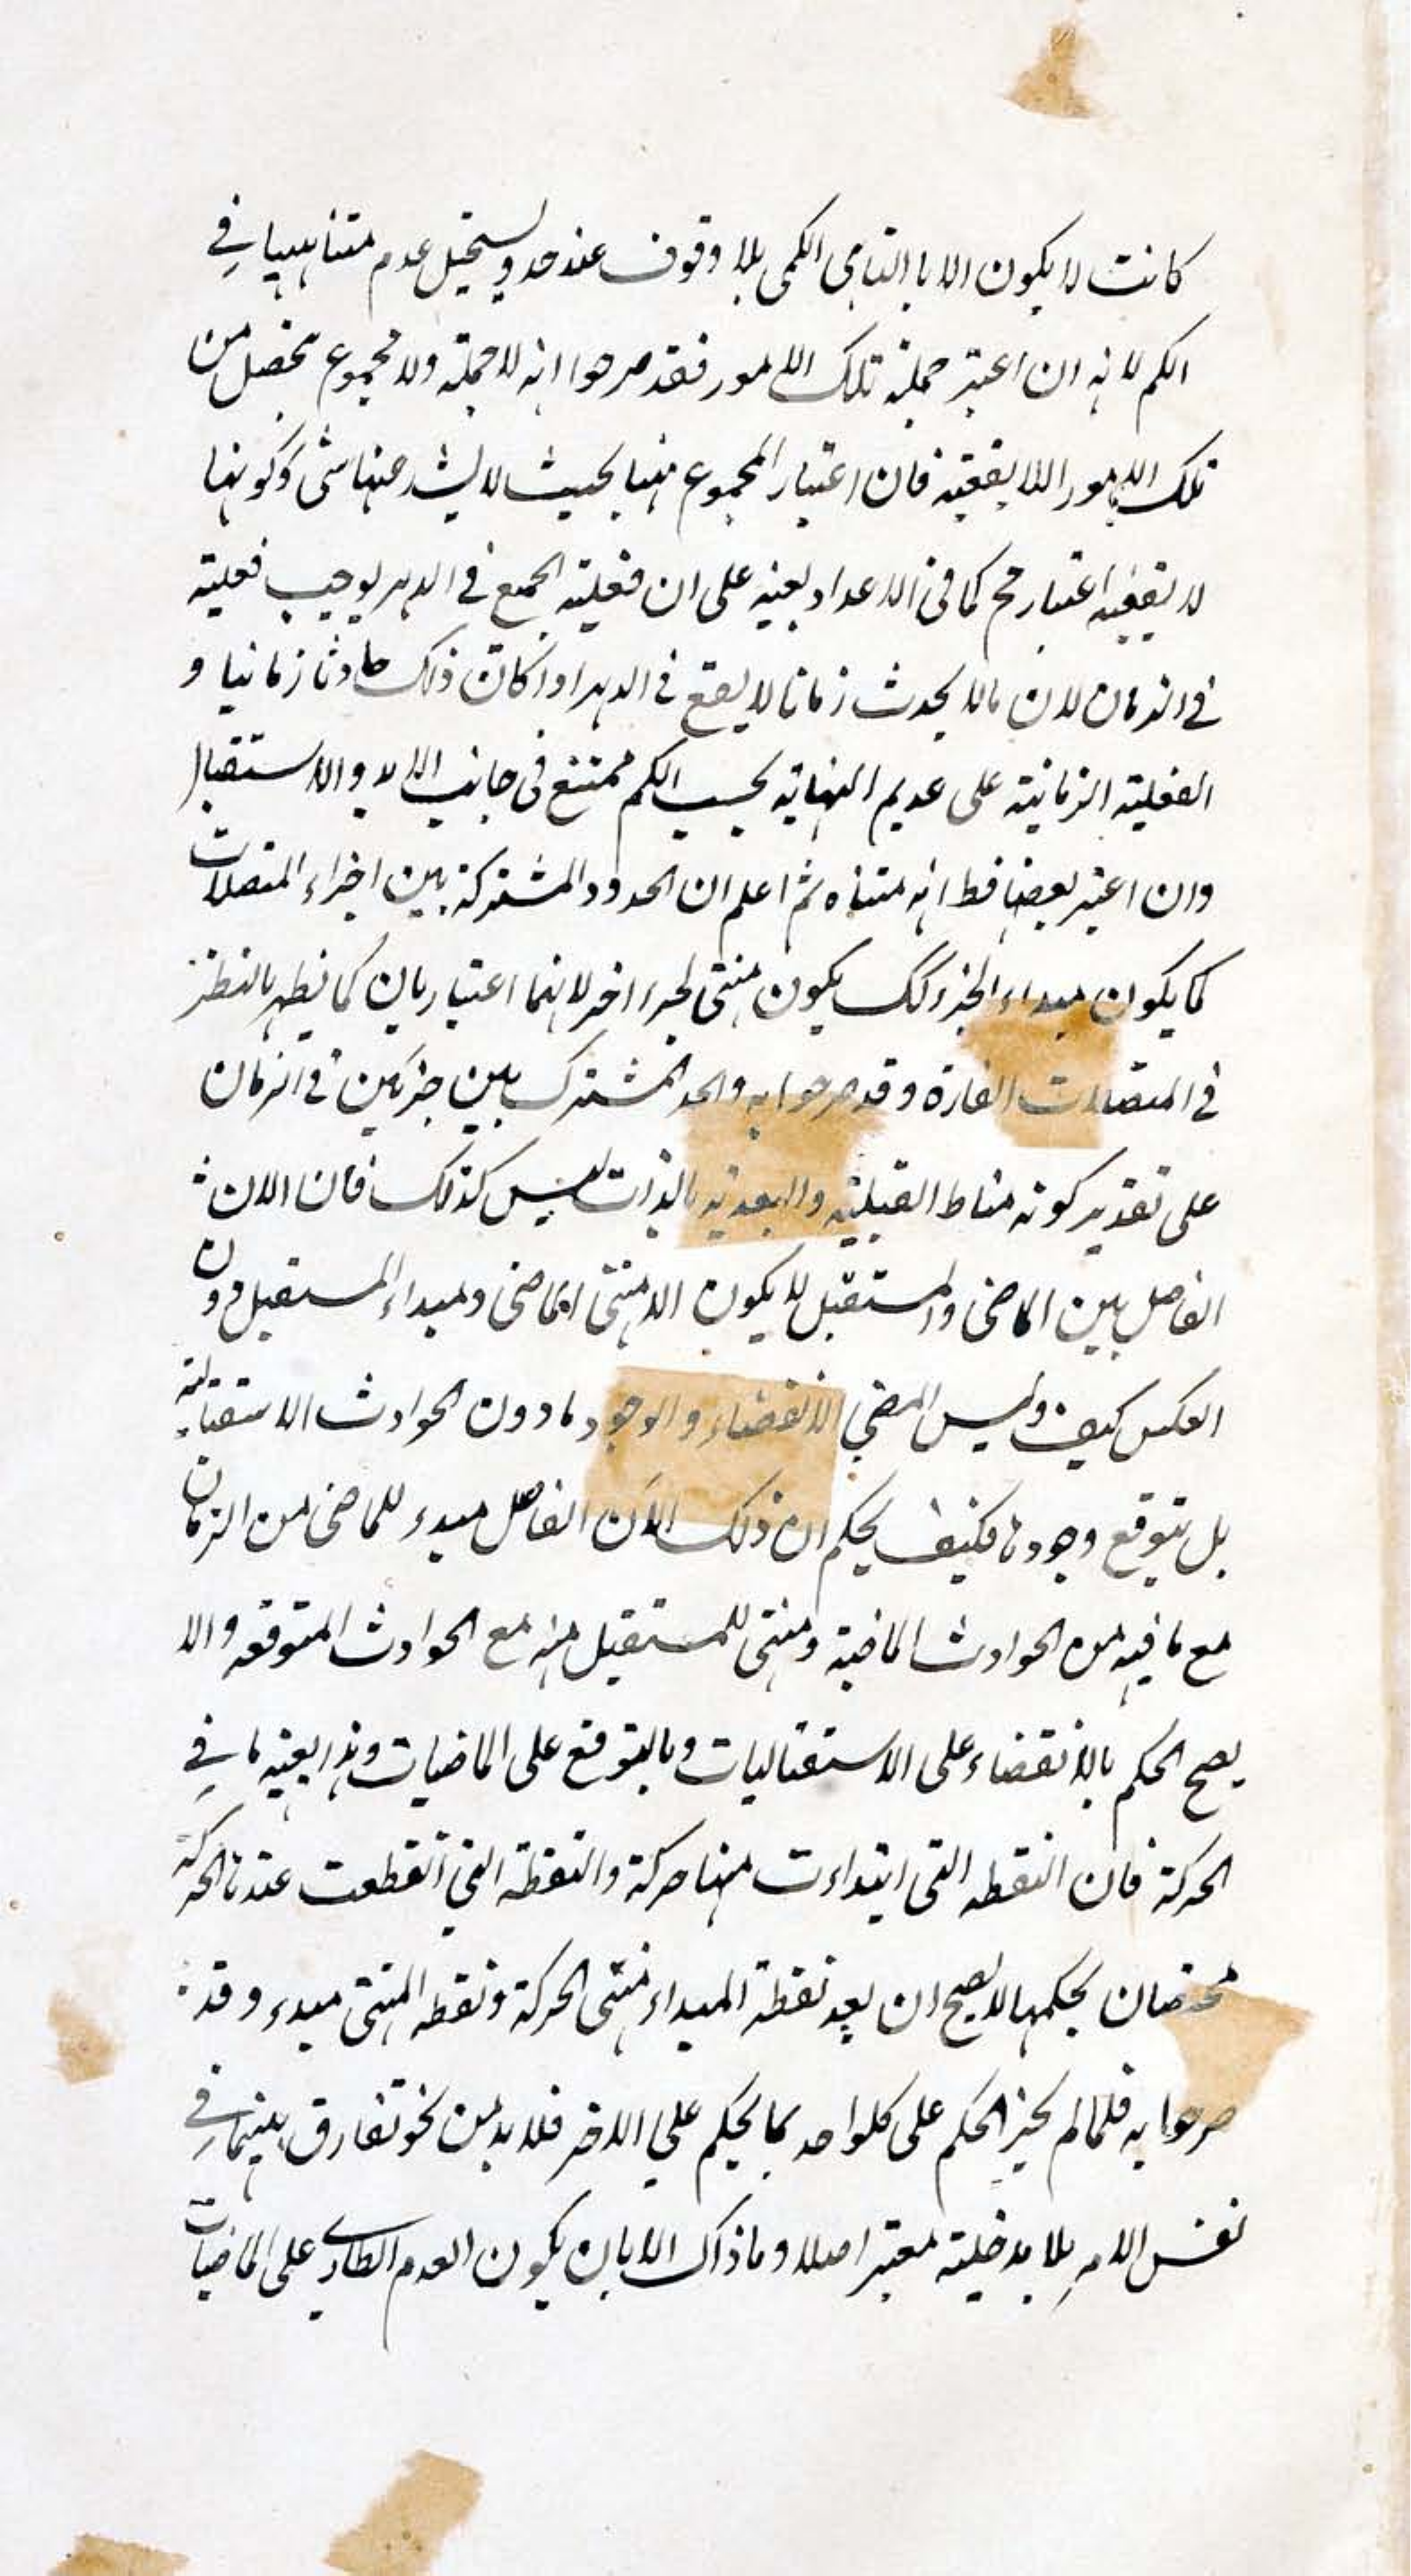 كانت لا يكون الا بالتناهى الكمى بلا وقوف عند حد ويستحيل عدم متناهيها في
الكم لانه ان اعتبر جملة تلك الامور فقد صرحوا انه لا جملة ولا مجموع تحصل من
تلك الامور اللايقفية فان اعتبار المجموع منها بحيث لا يشذ عنها شئ وكونها
لا يقفية اعتبار مح كما فى الاعداد بعينه على ان فعلية الجمع في الدهر يوجب فعليته
في الزمان لان مالا يحدث زمانا لا يقع في الدهر اذا كان ذلك حادثا زمانيا و
الفعلية الزمانية على عديم النهاية بحسب الكم ممتنع فى جانب الابد والاستقبال
وان اعتبر بعضها فظ انه متناه ثم اعلم ان الحدود المشتركة بين اجزاء المتصلات
كما يكون مبداء الجزء كك يكون منتهى لجزء اخر لانهما اعتباريان كما يظهر بالنظر
في المتصلات القارة وقد صرحوا به والحد المشترك بين جزئين في الزمان
على تقدير كونه مناط القبلية والبعدية بالذات ليس كذلك فان الان
الفاصل بين الماضى والمستقبل لا يكون الا منتهى الماضى ومبداء المستقبل دون
العكس كيف وليس المضي الانقضاء والوجود مادون الحوادث الاستقبالية
بل يتوقع وجودها فكيف يحكم ان ذلك الآن الفاصل مبدء للماضى من الزمان
مع ما فيه من الحوادث الماضية ومنتهى للمستقبل منه مع الحوادث المتوقعه والا
يصح الحكم بالانقضاء على الاستقباليات وبالتوقع على الماضيات وهذا بعينه ما في
الحركة فان النقطه التى ابتداءت منها حركة والنقطة التي انقطعت عندها الحركة
مختصان بحكمها لا يصح ان يعد نقطة المبداء منتهى الحركة ونقطه المنتهى مبدء وقد
صرحوا به فلما لم يجز الحكم على كلواحد بما يحكم علي الاخر فلا بد من نحو تفارق بينهما في
نفس الامر بلا مدخلية معتبر اصلا وما ذاك الا بان يكون العدم الطارى على الماضيات